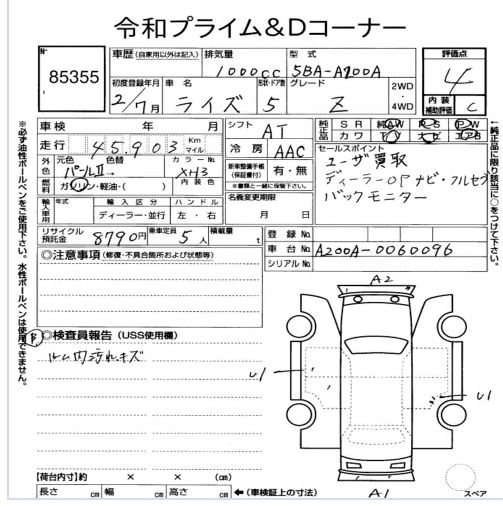 令和プライム&Dコーナー
No
85355
車歴 (自家用以外は記入)
排気量
1000cc
型式
5BA-A200A
評価点
4
初度登録年月
2/7月
車名
ライズ
形状・ドア数
5
グレード
Z
2WD
・
4WD
内装
補助評価
C
車検 年 月
走行 45903 Km
マイル
シフト
AT
冷房
AAC
純正品
SR
カワ
AW
PS
PW
TV
ナビ
エアB
外色
元色 色替
パールII→
カラーNo
XH3
燃料
ガソリン・軽油・( )
内装色
新車整備手帳
(保証書付)
有・無
※書類と一緒に保管下さい。
セールスポイント
ユーザ買取
ディーラーOPナビ・フルセグ
バックモニター
輸入車用
年式
輸入区分
ディーラー・並行
ハンドル
左・右
名義変更期限
月 日
リサイクル
預託金
8790円
乗車定員
5人
積載量
t
登録No.
車台No.
A200A-0060096
シリアルNo.
◎注意事項 (修復・不具合箇所および状態等)
◎検査員報告 (USS使用欄)
ルーム内汚れ、キズ
A2
U1
U1
A1
【荷台内寸】約 × × (cm)
長さ cm 幅 cm 高さ cm ←(車検証上の寸法)
スペア
※必ず油性ボールペンをご使用下さい。水性ボールペンは使用できません。
←純正品に限り該当に○をつけて下さい。